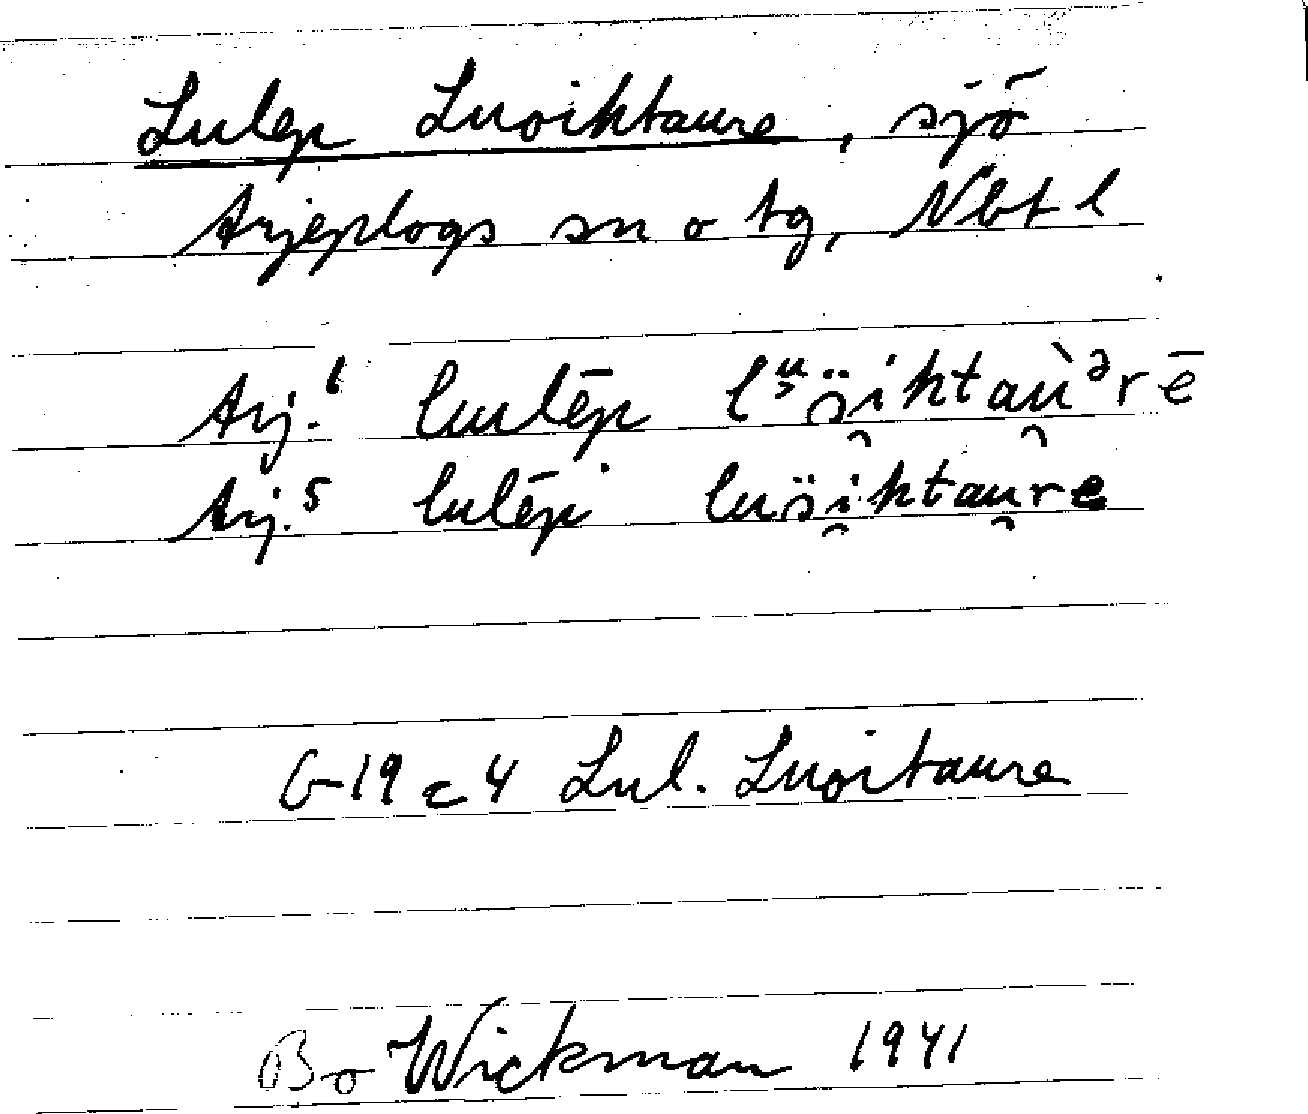 Lulep Luoiktaure, sjö
Arjeplogs sn o tg, Nbt l
Arj.¹ lulēp
Arj.⁵ lulēp luöi̯ktau̯re
G-19 c 4 Lul. Luoitaure
Bo Wickman 1941